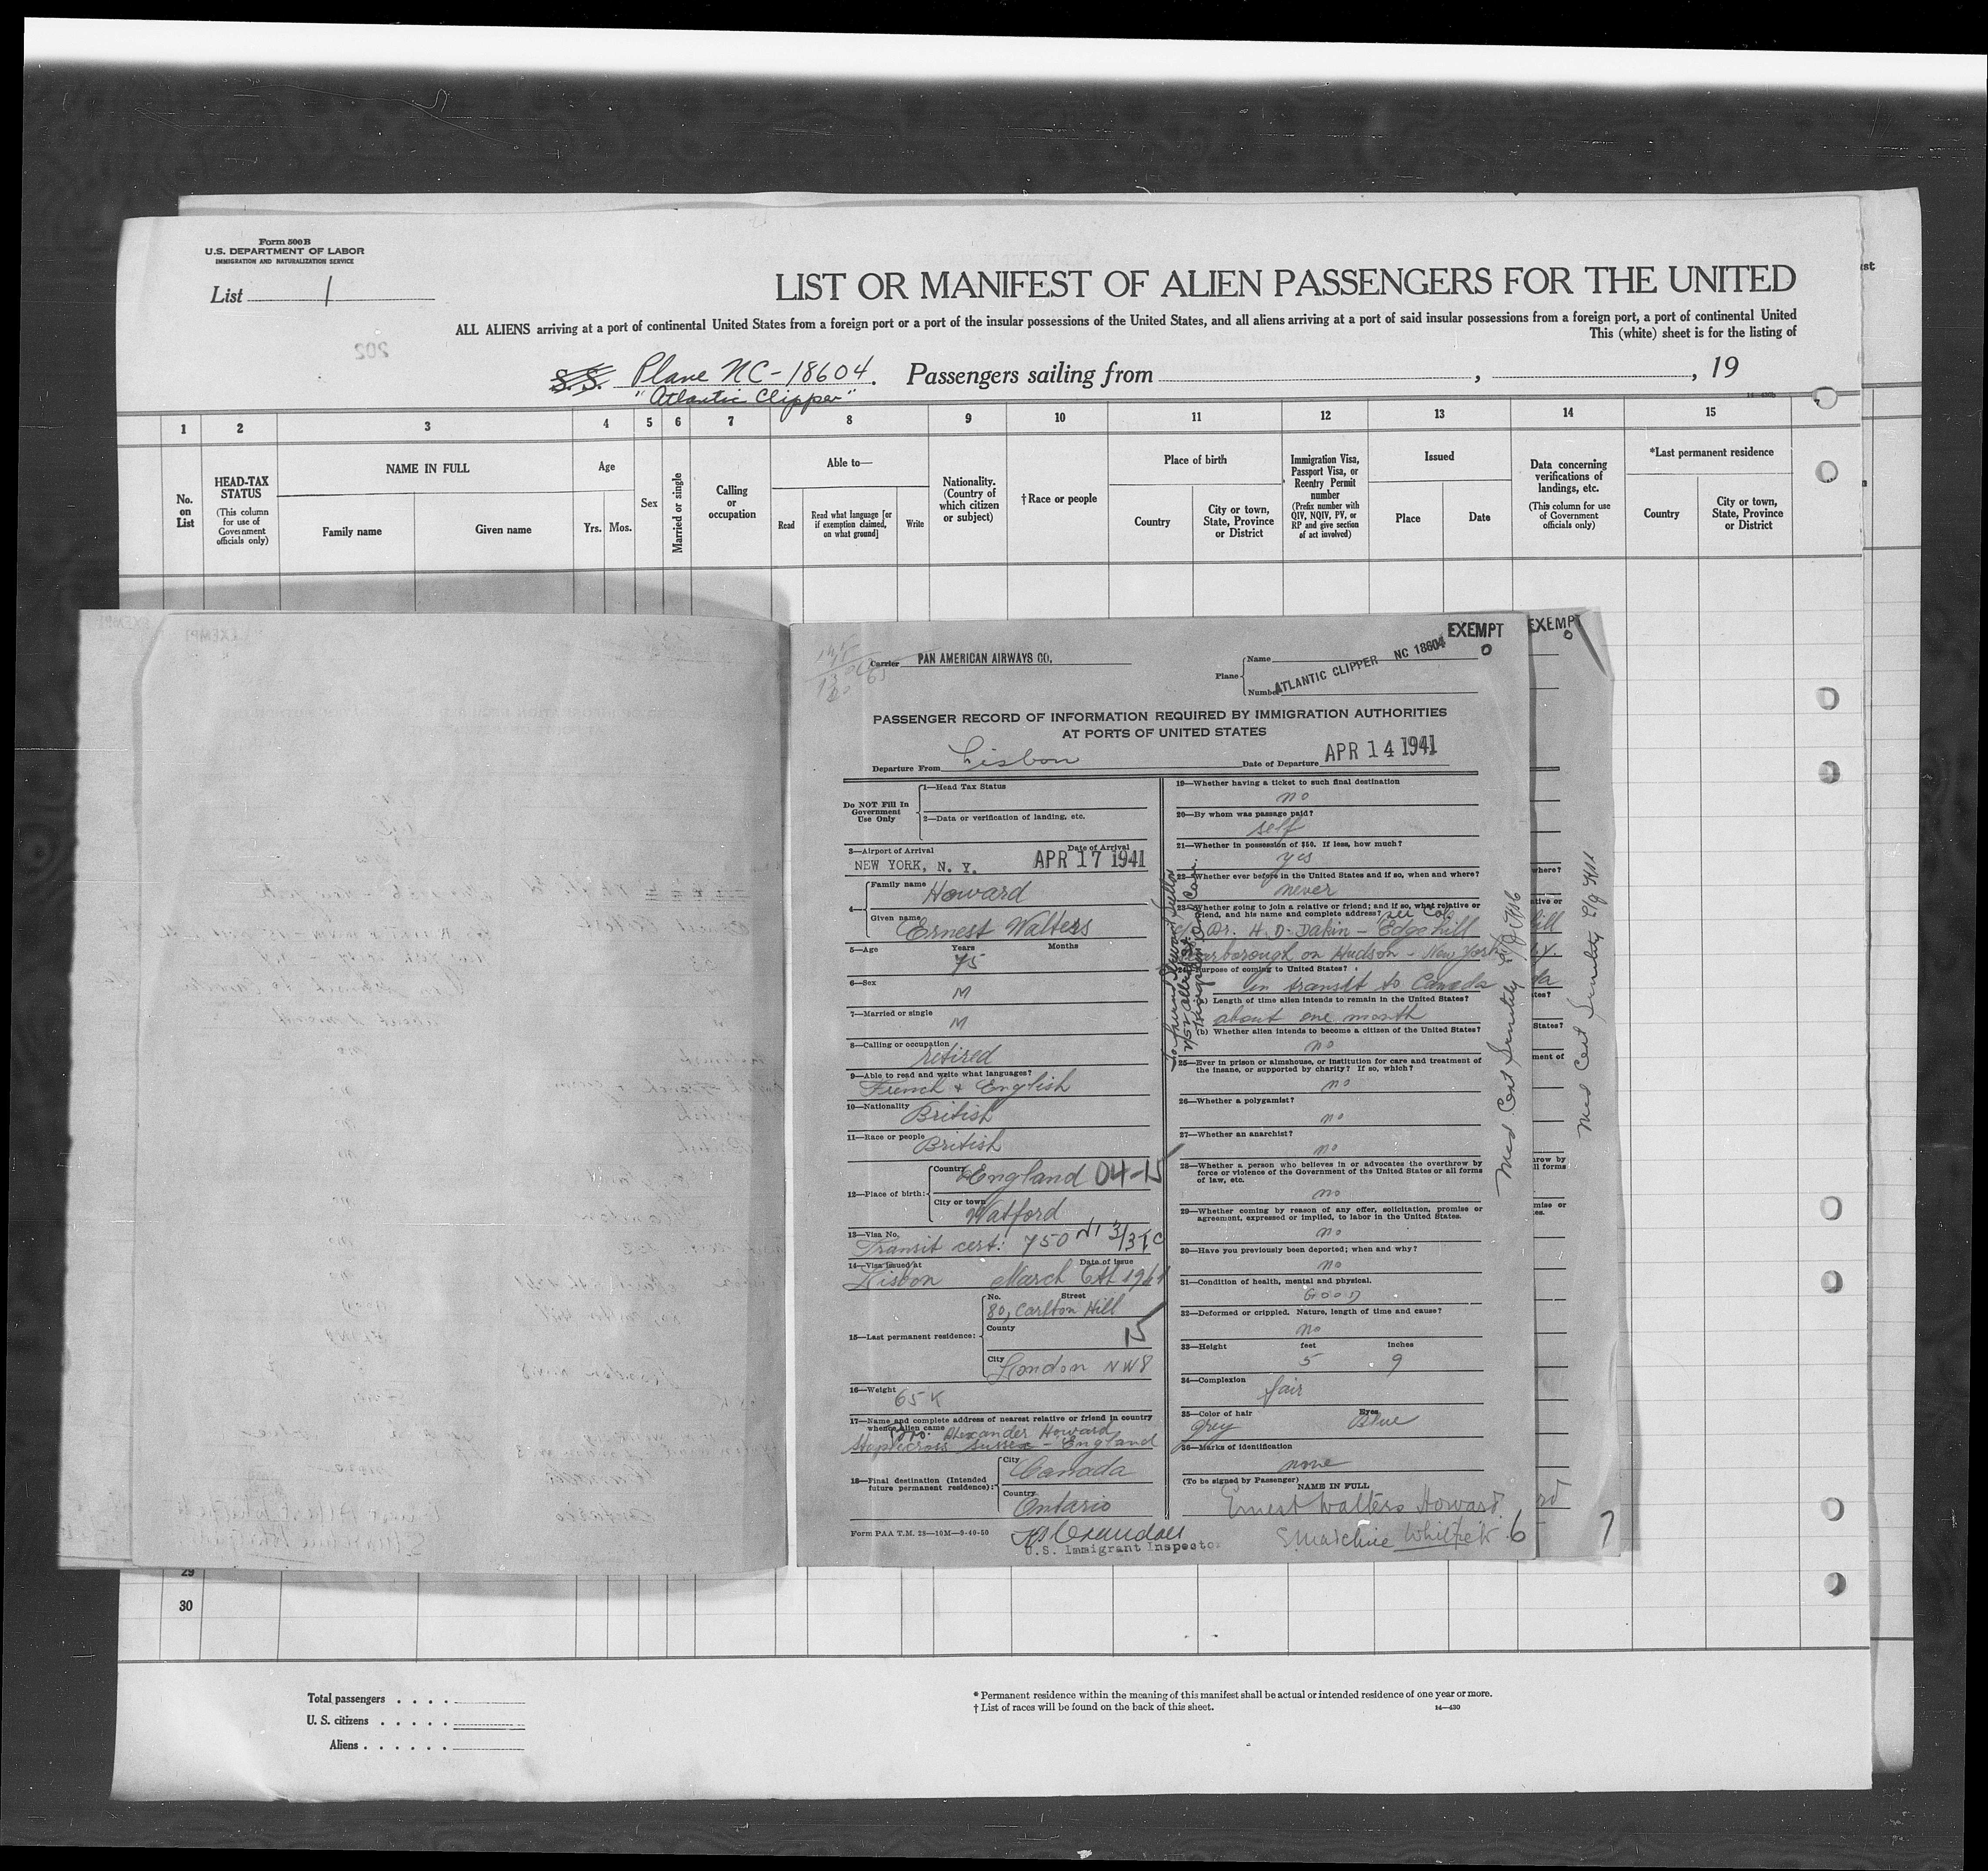 Form 500 B
U.S. DEPARTMENT OF LABOR
IMMIGRATION AND NATURALIZATION SERVICE
List 1
LIST OR MANIFEST OF ALIEN PASSENGERS FOR THE UNITED
ALL ALIENS arriving at a port of continental United States from a foreign port or a port of the insular possessions of the United States, and all aliens arriving at a port of said insular possessions from a foreign port, a port of continental United
This (white) sheet is for the listing of
202
S.S. Plane NC-18604. Passengers sailing from , , 19
"Atlantic Clipper"
1 2 3 4 5 6 7 8 9 10 11 12 13 14 15
No. on List
HEAD-TAX STATUS
(This column for use of Government officials only)
NAME IN FULL
Family name
Given name
Age
Yrs. Mos.
Sex
Married or single
Calling or occupation
Able to—
Read
Read what language [or if exemption claimed, on what ground]
Write
Nationality. (Country of which citizen or subject)
†Race or people
Place of birth
Country
City or town, State, Province or District
Immigration Visa, Passport Visa, or Reentry Permit number
(Prefix number with QIV, NQIV, PV, or RP and give section of act involved)
Issued
Place
Date
Data concerning verifications of landings, etc.
(This column for use of Government officials only)
*Last permanent residence
Country
City or town, State, Province or District
EXEMPT
0
EXEMPT
0
Carrier PAN AMERICAN AIRWAYS CO.
Plane
Name
Number
ATLANTIC CLIPPER NC 18604
PASSENGER RECORD OF INFORMATION REQUIRED BY IMMIGRATION AUTHORITIES
AT PORTS OF UNITED STATES
Departure From Lisbon
Date of Departure APR 14 1941
Do NOT Fill In Government Use Only
1—Head Tax Status
2—Data or verification of landing, etc.
3—Airport of Arrival Date of Arrival
NEW YORK, N. Y. APR 17 1941
4—
Family name Howard
Given name Ernest Walters
5—Age Years Months
75
6—Sex
M
7—Married or single
M
8—Calling or occupation
retired
9—Able to read and write what languages?
French & English
10—Nationality
British
11—Race or people
British
12—Place of birth:
Country England 04-15
City or town
Watford
13—Visa No.
Transit cert: 750
14—Visa issued at Date of issue
Lisbon March 6th 1941
15—Last permanent residence:
No. Street
80, Carlton Hill
County
15
City London NW8
16—Weight
65 K
17—Name and complete address of nearest relative or friend in country
whence Alien came
Alexander Howard
Sussex - England
18—Final destination (Intended future permanent residence):
City
Canada
Country
Ontario
Form PAA T.M. 28—10M—9-40-50
U.S. Immigrant Inspector
19—Whether having a ticket to such final destination
no
20—By whom was passage paid?
self
21—Whether in possession of $50. If less, how much?
yes
22—Whether ever before in the United States and if so, when and where?
never
23—Whether going to join a relative or friend; and if so, what relative or
friend, and his name and complete address? see Col.
Dr. H. D. Dakin - Edgehill
Scarborough on Hudson - New York
24—Purpose of coming to United States?
in transit to Canada
(a) Length of time alien intends to remain in the United States?
about one month
(b) Whether alien intends to become a citizen of the United States?
no
25—Ever in prison or almshouse, or institution for care and treatment of
the insane, or supported by charity? If so, which?
no
26—Whether a polygamist?
no
27—Whether an anarchist?
no
28—Whether a person who believes in or advocates the overthrow by
force or violence of the Government of the United States or all forms
of law, etc.
no
29—Whether coming by reason of any offer, solicitation, promise or
agreement, expressed or implied, to labor in the United States.
no
30—Have you previously been deported; when and why?
no
31—Condition of health, mental and physical.
GOOD
32—Deformed or crippled. Nature, length of time and cause?
no
33—Height feet inches
5 9
34—Complexion
fair
35—Color of hair Eyes
grey Blue
36—Marks of identification
none
(To be signed by Passenger)
NAME IN FULL
Ernest Walters Howard
6
Med Cert Senility
Med Cert Senility
7
29
30
Total passengers . . . .
U. S. citizens . . . . .
Aliens . . . . . .
* Permanent residence within the meaning of this manifest shall be actual or intended residence of one year or more.
† List of races will be found on the back of this sheet.
14—430